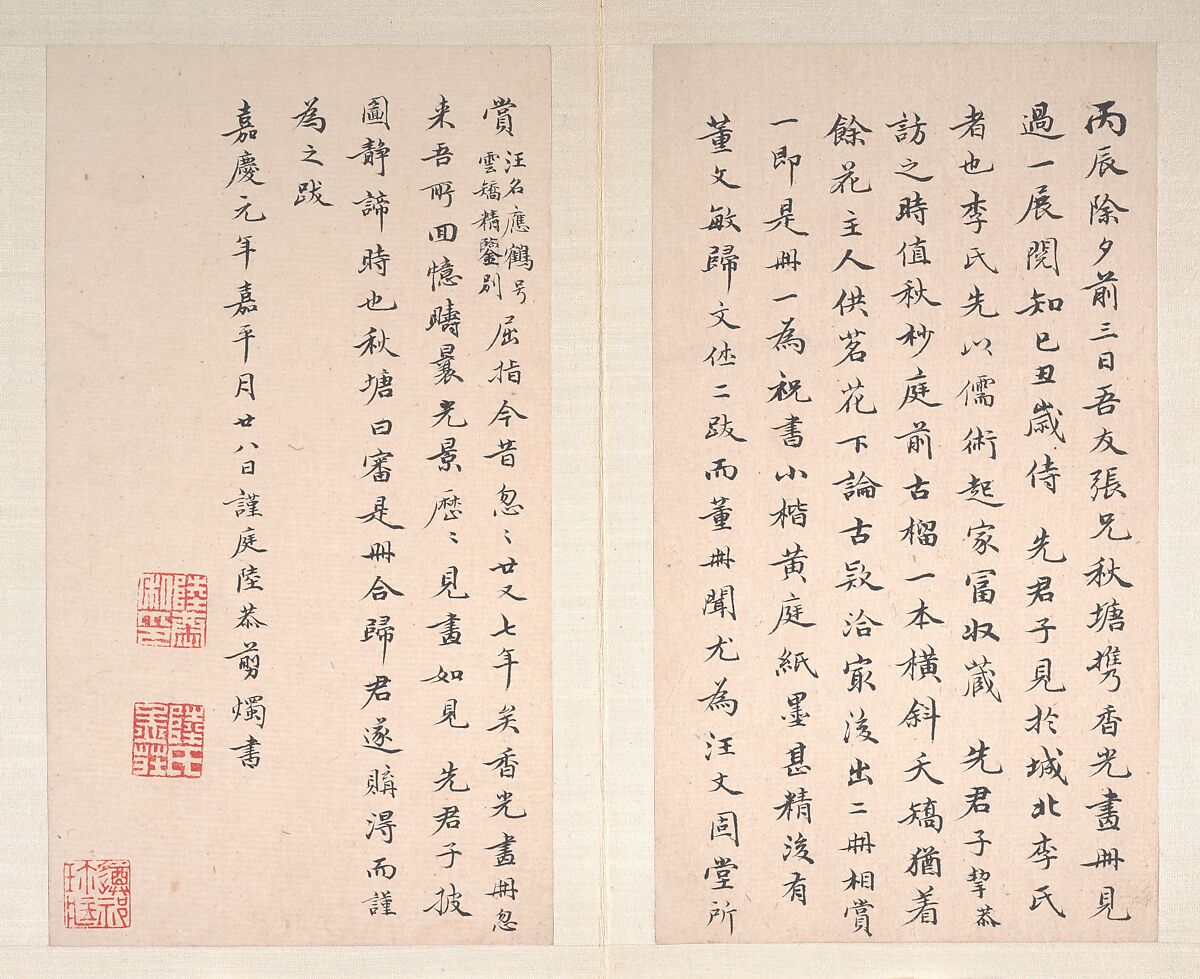 丙辰除夕前三日吾友張兄秋塘携香光畫冊見
過一展閱知已丑歲侍 先君子見於城北李氏
者也李氏先以儒術起家富收藏 先君子挈恭
訪之時值秋杪庭前古榴一本橫斜夭矯猶着
餘花主人供茗花下論古歘洽寂後出二冊相賞
一即是冊一為祝書小楷黃庭紙墨甚精後有
董文敏歸文休二跋而董冊聞尤為汪文固堂所
賞
汪名應鶴号
雲矯精鑒別
屈指今昔忽〻廿又七年矣香光畫冊忽
来吾所回憶疇曩光景歷〻見畫如見 先君子披
圖靜諦時也秋塘曰審是冊合歸君遂購得而謹
為之跋
嘉慶元年嘉平月廿八日謹庭陸恭剪燭書